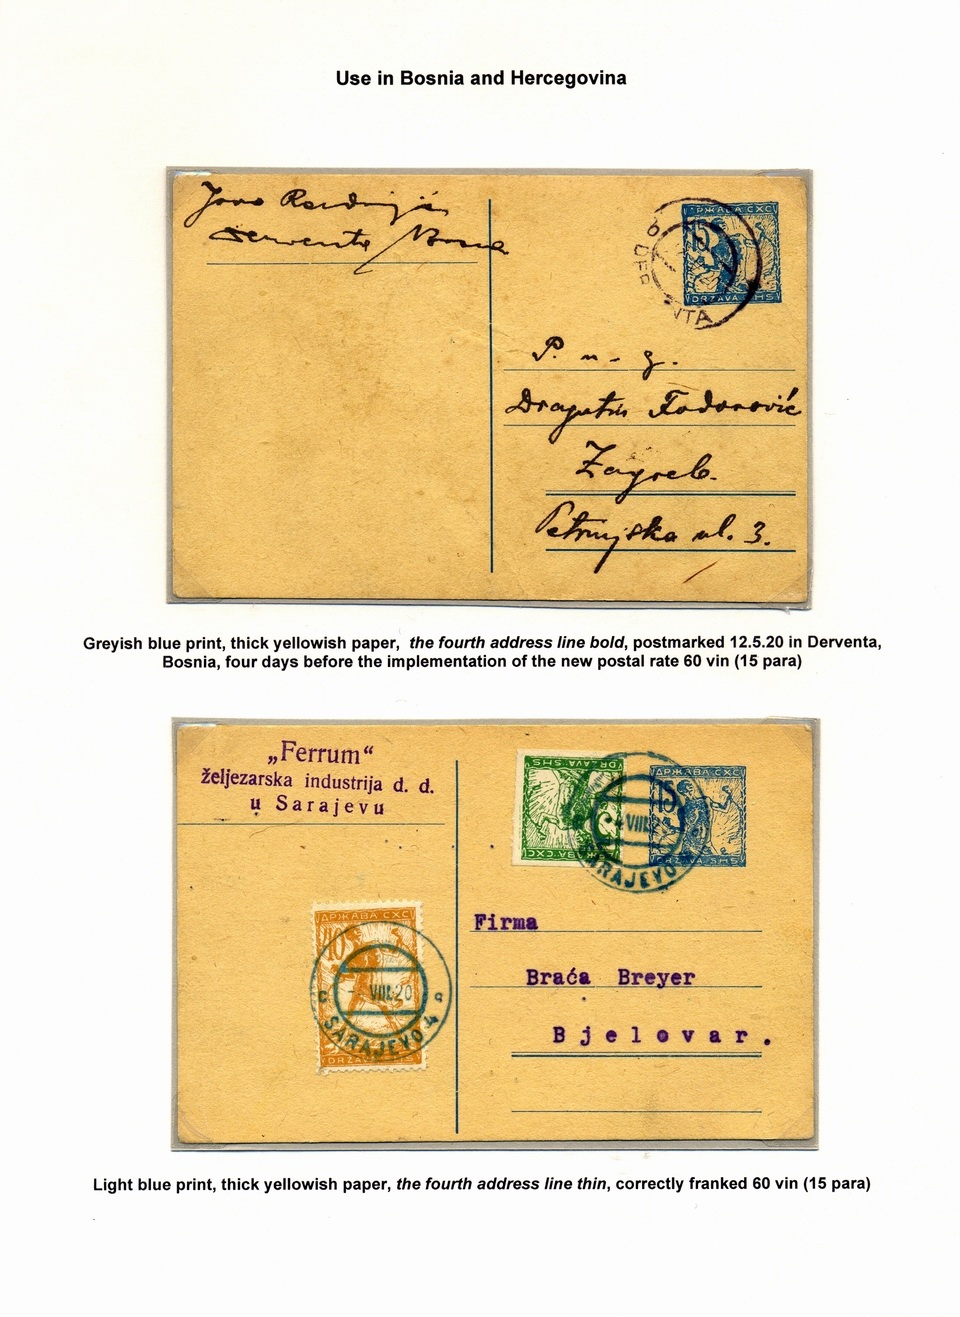 Use in Bosnia and Hercegovina
Jovo
Derventa / Bosna
ДРЖАВА СХС
15
DRŽAVA SHS
P. n. g.
Dragutin Todorović
Zagreb.
Petrinjska ul. 3.
Greyish blue print, thick yellowish paper, the fourth address line bold, postmarked 12.5.20 in Derventa,
Bosnia, four days before the implementation of the new postal rate 60 vin (15 para)
„Ferrum“
željezarska industrija d. d.
u Sarajevu
DRŽAVA SHS
5
ДРЖАВА СХС
ДРЖАВА СХС
15
DRŽAVA SHS
VIII
SARAJEVO
ДРЖАВА СХС
10
VIII.20
SARAJEVO 4
DRŽAVA SHS
Firma
Braća Breyer
Bjelovar.
Light blue print, thick yellowish paper, the fourth address line thin, correctly franked 60 vin (15 para)